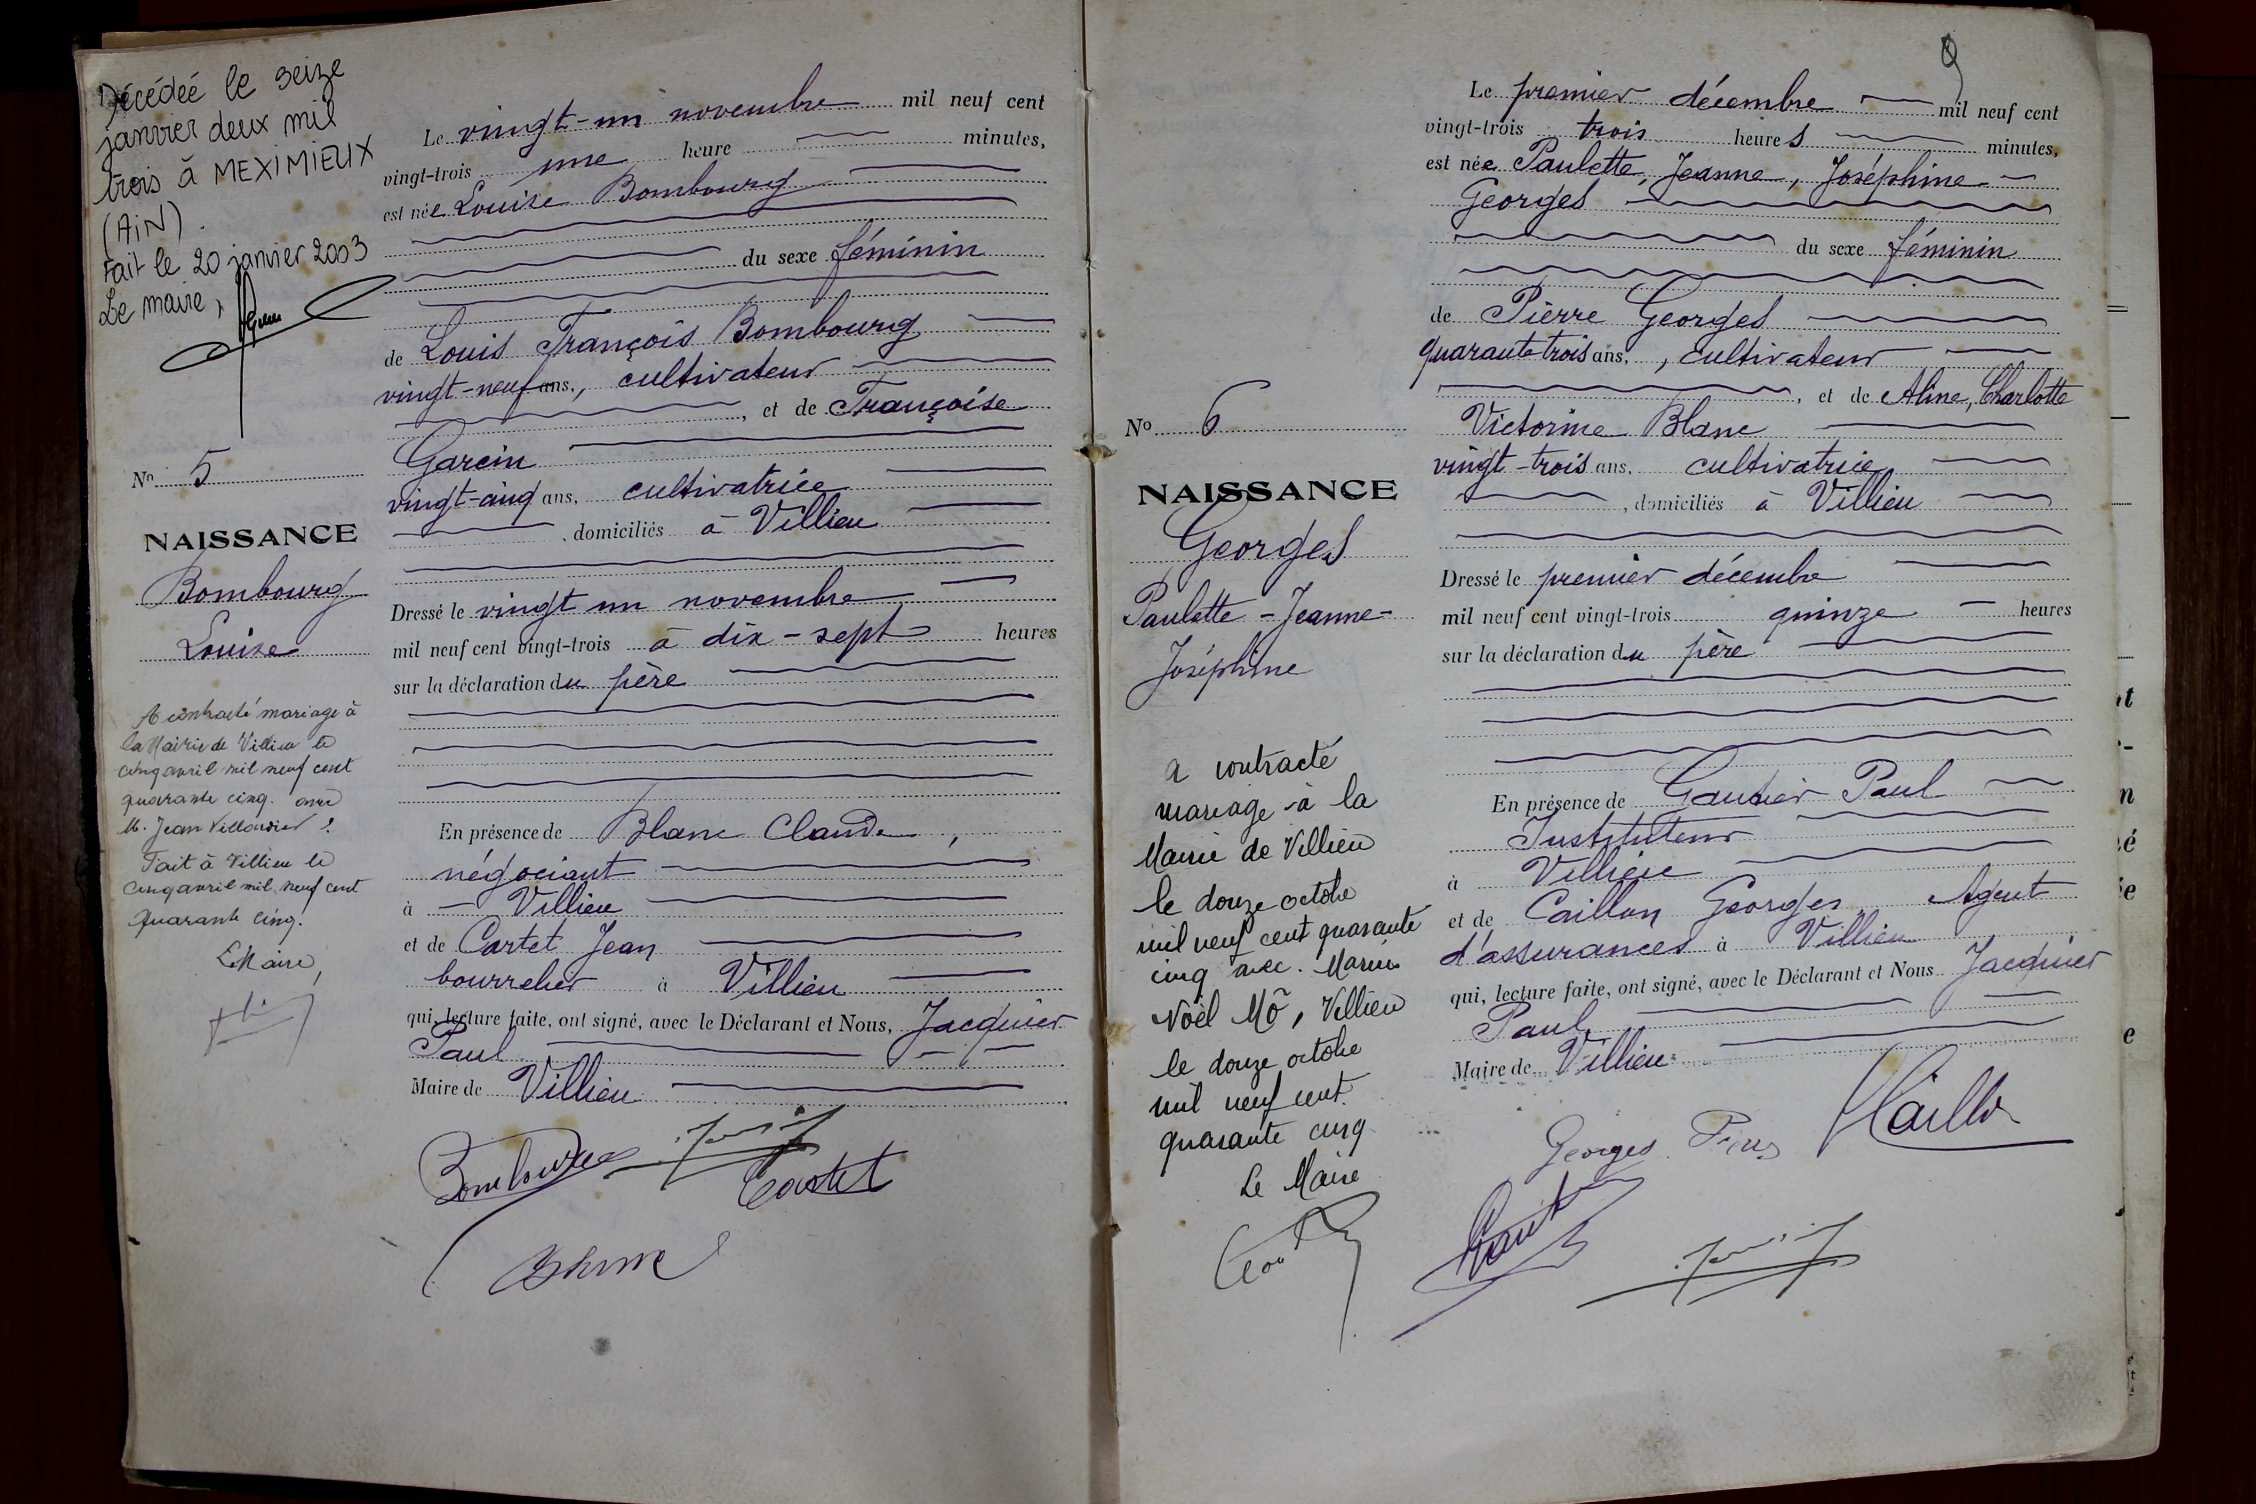 Décédée le seize
janvier deux mil
trois à MEXIMIEUX
(AiN).
Fait le 20 janvier 2003
Le maire,
No 5
NAISSANCE
Bombourg
Louise
A contracté mariage à
la Mairie de Villieu le
cinq avril mil neuf cent
quarante cinq. avec
M. Jean
Fait à Villieu le
cinq avril mil neuf cent
quarante cinq.
Le Maire,
Le vingt-un novembre mil neuf cent
vingt-trois une heure minutes,
est née Louise Bombourg
du sexe féminin
de Louis François Bombourg
vingt-neuf ans, cultivateur
, et de Françoise
Garcin
vingt-cinq ans, cultivatrice
, domiciliés à Villieu
Dressé le vingt un novembre
mil neuf cent vingt-trois à dix-sept heures
sur la déclaration du père
En présence de Blanc Claude,
négociant
à Villieu
et de Cartet Jean
bourrelier à Villieu
qui, lecture faite, ont signé, avec le Déclarant et Nous, Jacquier
Paul
Maire de Villieu
Cartet
9
No 6
NAISSANCE
Georges
Paulette - Jeanne -
Joséphine
a contracté
mariage à la
Mairie de Villieu
le douze octobre
mil neuf cent quarante
cinq avec Marius
Noël Mô, Villieu
le douze octobre
mil neuf cent
quarante cinq
Le Maire
Le premier décembre mil neuf cent
vingt-trois trois heures minutes,
est née Paulette, Jeanne, Joséphine
Georges
du sexe féminin
de Pierre Georges
quarante trois ans, , cultivateur
, et de Aline, Charlotte
Victorine Blanc
vingt-trois ans, cultivatrice
, domiciliés à Villieu
Dressé le premier décembre
mil neuf cent vingt-trois quinze heures
sur la déclaration du père
En présence de Gautier Paul
Instituteur
à Villieu
et de Caillon Georges Agent
d'assurances à Villieu
qui, lecture faite, ont signé, avec le Déclarant et Nous Jacquier
Paul
Maire de Villieu
Georges